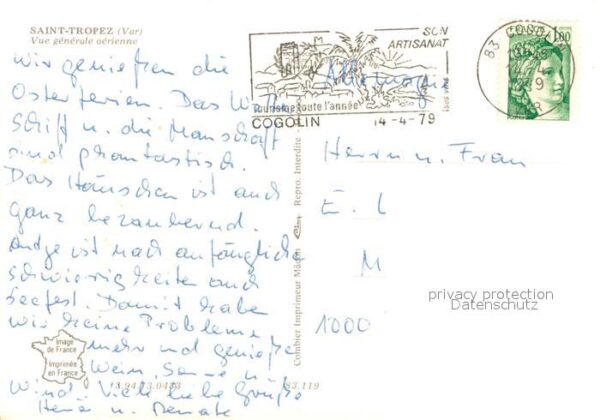 SAINT-TROPEZ (Var)
Vue générale aérienne
Wir genießen die
Osterferien. Das
Schiff u. die Manschaft
sind phantastisch.
Das Häuschen ist auch
ganz bezaubernd.
ist nach anfänglichen
Schwierigkeiten auch
seefest. Damit haben
wir keine Probleme
mehr und genießen
Wein, Sonne u.
Wind. Viele liebe Grüße
u. Renate
Image
de France
Imprimée
en France
83.119
Combier Imprimeur Mâcon
Repro. Interdite
SON
ARTISANAT
Tourisme toute l'année
COGOLIN 14-4-79
83
1.00
Allemagne
Herrn u. Frau
E. L
M
1000
privacy protection
Datenschutz